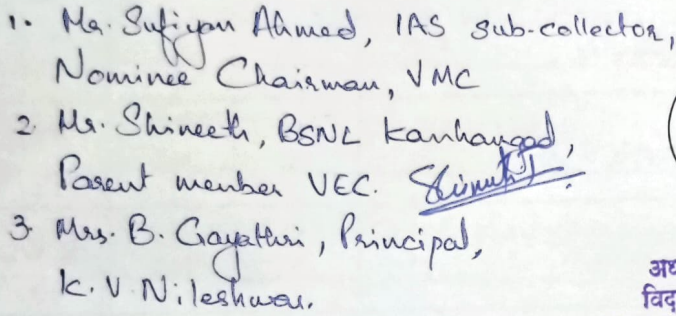 1. Mr. Sufiyan Ahmed, IAS sub-collector,
Nominee Chairman, VMC
2. Mr. Shineeth, BSNL Kanhangad,
Parent member VEC.
3. Mrs. B. Gayathri, Principal,
K.V. Nileshwar.